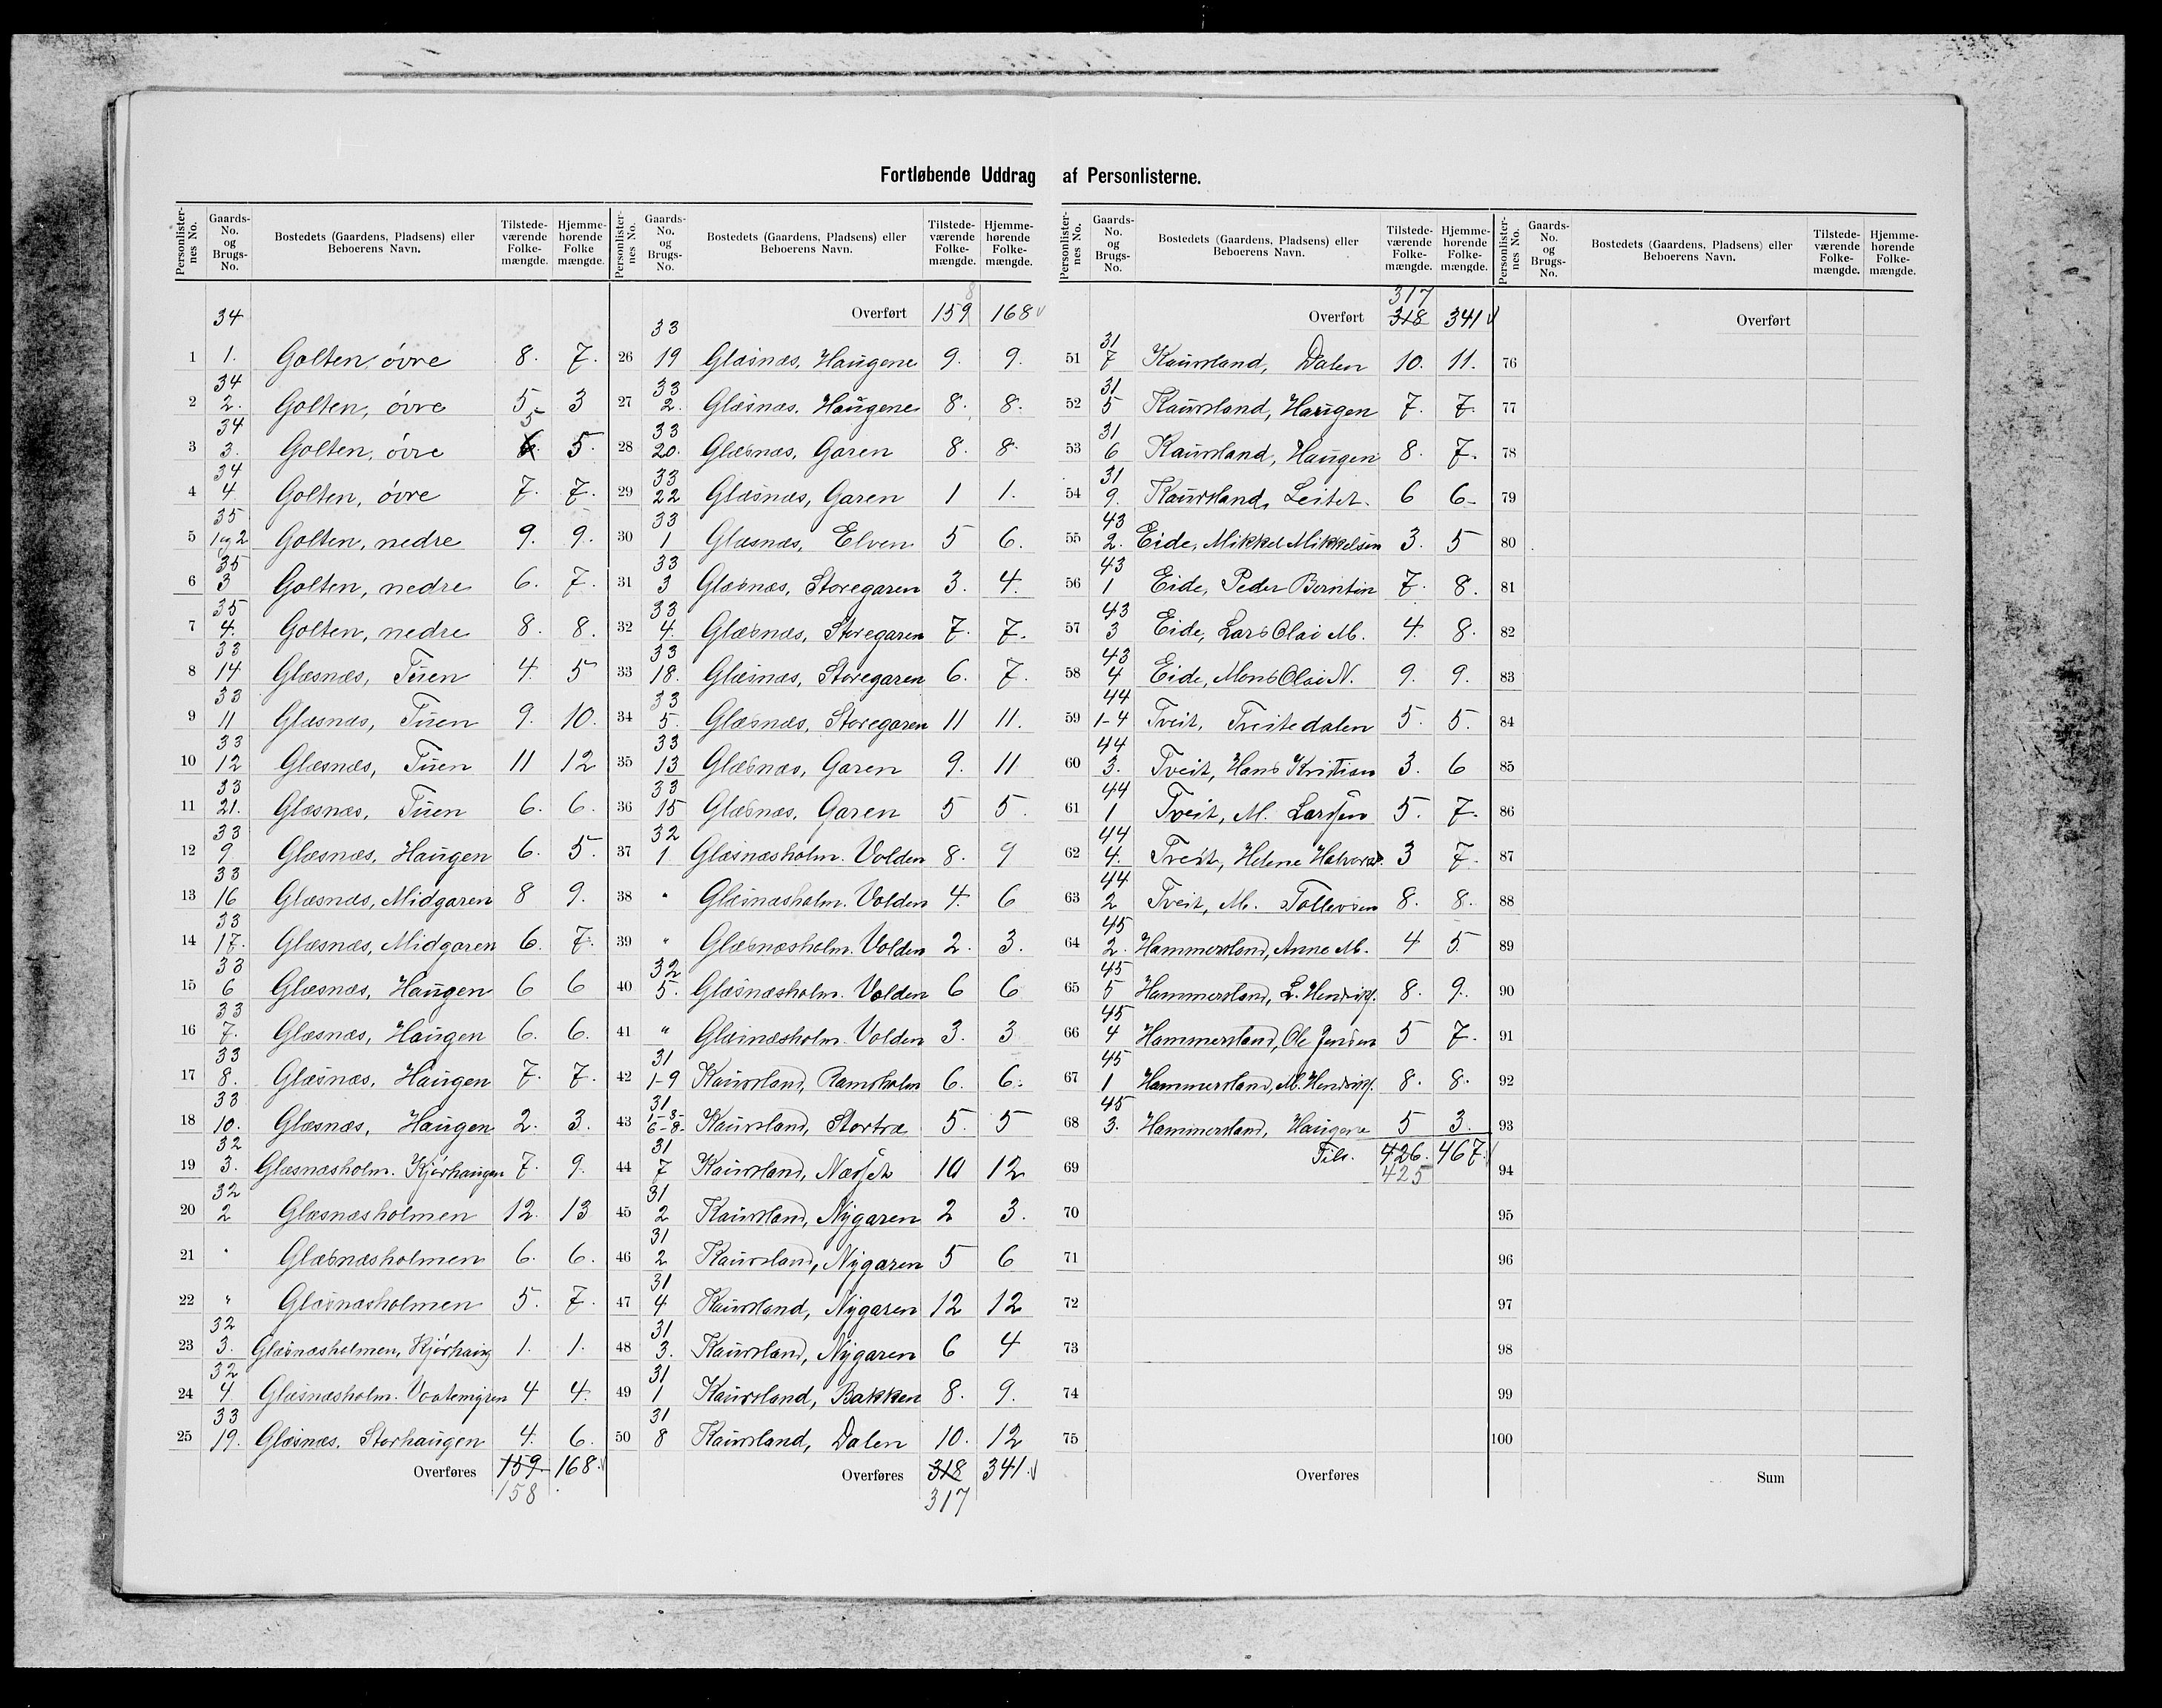 Fortløbende Uddrag af Personlisterne.
Personlister-nes No. | Gaards-No. og Brugs-No. | Bostedets (Gaardens, Pladsens) eller Beboerens Navn. | Tilstede-værende Folke-mængde. | Hjemme-hørende Folke mængde.
1 | 34 1. | Golten, övre | 8. | 7.
2 | 34 2. | Golten, övre | 5 | 3
3 | 34 3. | Golten, övre | 6. 5 | 5.
4 | 34 4. | Golten, övre | 7. | 7.
5 | 35 1 og 2 | Golten, nedre | 9. | 9.
6 | 35 3 | Golten, nedre | 6. | 7.
7 | 35 4. | Golten, nedre | 8. | 8.
8 | 33 14 | Glæsnæs, Tuen | 4. | 5
9 | 33 11 | Glæsnæs, Tuen | 9. | 10.
10 | 33 12 | Glæsnæs, Tuen | 11 | 12
11 | 33 21. | Glæsnæs, Tuen | 6. | 6.
12 | 33 9 | Glæsnæs, Haugen | 6. | 5.
13 | 33 16 | Glæsnæs, Midgaren | 8 | 9.
14 | 33 17. | Glæsnæs, Midgaren | 6. | 7.
15 | 33 6 | Glæsnæs, Haugen | 6 | 6
16 | 33 7. | Glæsnæs, Haugen | 6. | 6.
17 | 33 8. | Glæsnæs, Haugen | 7. | 7.
18 | 33 10. | Glæsnæs, Haugen | 2. | 3.
19 | 32 3. | Glæsnæsholm. Kjörhaugen | 7. | 9.
20 | 32 2 | Glæsnæsholmen | 12. | 13
21 | " | Glæsnæsholmen | 6. | 6.
22 | " | Glæsnæsholmen | 5. | 7.
23 | 32 3. | Glæsnæsholmen, Kjörhaug | 1. | 1.
24 | 32 4 | Glæsnæsholm. | 4 | 4.
25 | 33 19. | Glæsnæs, Storhaugen | 4. | 6.
Overføres | 159. 158 | 168.
Personlister-nes No. | Gaards-No. og Brugs-No. | Bostedets (Gaardens, Pladsens) eller Beboerens Navn. | Tilstede-værende Folke-mængde. | Hjemme-hørende Folke-mængde.
Overført | 159 8 | 168
26 | 33 19 | Glæsnæs, Haugene | 9. | 9.
27 | 33 2. | Glæsnæs. Haugene | 8. | 8.
28 | 33 20. | Glæsnæs, Garen | 8. | 8.
29 | 33 22 | Glæsnæs, Garen | 1 | 1.
30 | 33 1 | Glæsnæs, Elven | 5 | 6.
31 | 33 3 | Glæsnæs, Storegaren | 3. | 4.
32 | 33 4. | Glæsnæs, Storegaren | 7. | 7.
33 | 33 18. | Glæsnæs, Storegaren | 6. | 7.
34 | 33 5. | Glæsnæs, Storegaren | 11 | 11.
35 | 33 13 | Glæsnæs, Garen | 9. | 11
36 | 33 15 | Glæsnæs, Garen | 5 | 5.
37 | 32 1 | Glæsnæsholm. Volden | 8. | 9
38 | " | Glæsnæsholm. Volden | 4. | 6
39 | " | Glæsnæsholm. Volden | 2. | 3.
40 | 32 5. | Glæsnæsholm. Volden | 6 | 6
41 | " | Glæsnæsholm. Volden | 3. | 3
42 | 31 1-9 | Kausland, Ramsholm | 6. | 6.
43 | 31 | Kausland, Stortræ | 5. | 5
44 | 31 7 | Kausland, Næsset | 10 | 12
45 | 31 2 | Kausland, Nygaren | 2 | 3.
46 | 31 2 | Kausland, Nygaren | 5 | 6
47 | 31 4 | Kausland, Nygaren | 12 | 12
48 | 31 3. | Kausland, Nygaren | 6 | 4
49 | 31 1 | Kausland, Bakken | 8. | 9.
50 | 31 8 | Kausland, Dalen | 10. | 12
Overføres | 318 317 | 341.
Personlister-nes No. | Gaards-No. og Brugs-No. | Bostedets (Gaardens, Pladsens) eller Beboerens Navn. | Tilstede-værende Folke-mængde. | Hjemme-hørende Folke-mængde.
Overført | 317 318 | 341
51 | 31 7 | Kausland, Dalen | 10. | 11.
52 | 31 5 | Kausland, Haugen | 7. | 7.
53 | 31 6 | Kausland, Haugen | 8. | 7.
54 | 31 9. | Kausland, Leitet. | 6 | 6
55 | 43 2. | Eide, Mikkel Mikkelsen | 3. | 5
56 | 43 1 | Eide, Peder Berntin | 7. | 8.
57 | 43 3 | Eide, Lars Olai M. | 4. | 8.
58 | 43 4 | Eide, Mons Olai N. | 9. | 9.
59 | 44 1-4 | Tveit, Tveitedalen | 5. | 5.
60 | 44 3. | Tveit, Hans Kristian | 3. | 6
61 | 44 1 | Tveit, M. Larssen | 5. | 7.
62 | 44 4. | Tveit, Helene Halvorsd. | 3 | 7.
63 | 44 2 | Tveit, M. Tollevsen | 8. | 8.
64 | 45 2. | Hammersland, Anne M. | 4 | 5.
65 | 45 5 | Hammersland, L. Hendriks. | 8. | 9.
66 | 45 4 | Hammersland, Ole Jensen | 5 | 7.
67 | 45 1 | Hammersland, M. Hendriks. | 8. | 8.
68 | 45 3. | Hammersland, Haugene | 5 | 3.
69 | Tils. | 426. 425 | 467.
70
71
72
73
74
75
Overføres
Personlister-nes No. | Gaards-No. og Brugs-No. | Bostedets (Gaardens, Pladsens) eller Beboerens Navn. | Tilstede-værende Folke-mængde. | Hjemme-hørende Folke-mængde.
Overført
76
77
78
79
80
81
82
83
84
85
86
87
88
89
90
91
92
93
94
95
96
97
98
99
100
Sum